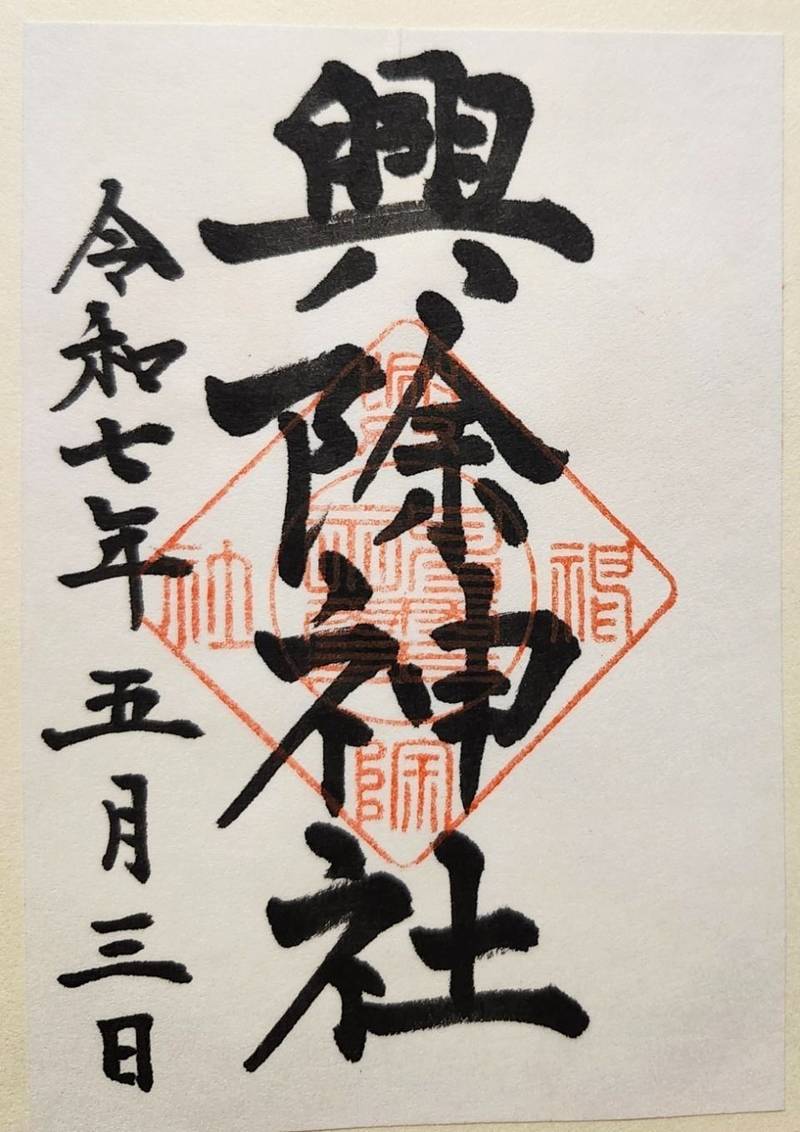 興除神社
令和七年 五月三日